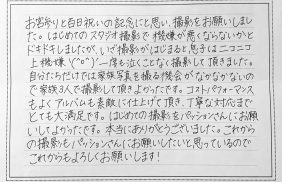 お宮参りと百日祝いの記念にと思い、撮影をお願いしまし
た。はじめてのスタジオ撮影で機嫌が悪くならないかと
ドキドキしましたが、いざ撮影がはじまると息子はニコニコ
上機嫌(^o^)一度も泣くことなく撮影して頂きました。
自分たちだけでは家族写真を撮る機会がなかなかないの
で家族3人で撮影して頂きよかったです。コストパフォーマンス
もよくアルバムも素敵に仕上げて頂き、丁寧な対応まで
とても大満足です。はじめての撮影をパッションさんにお願
いしてよかったです。本当にありがとうございました。これから
の撮影もパッションさんにお願いしたいと思っているので
これからもよろしくお願いします!